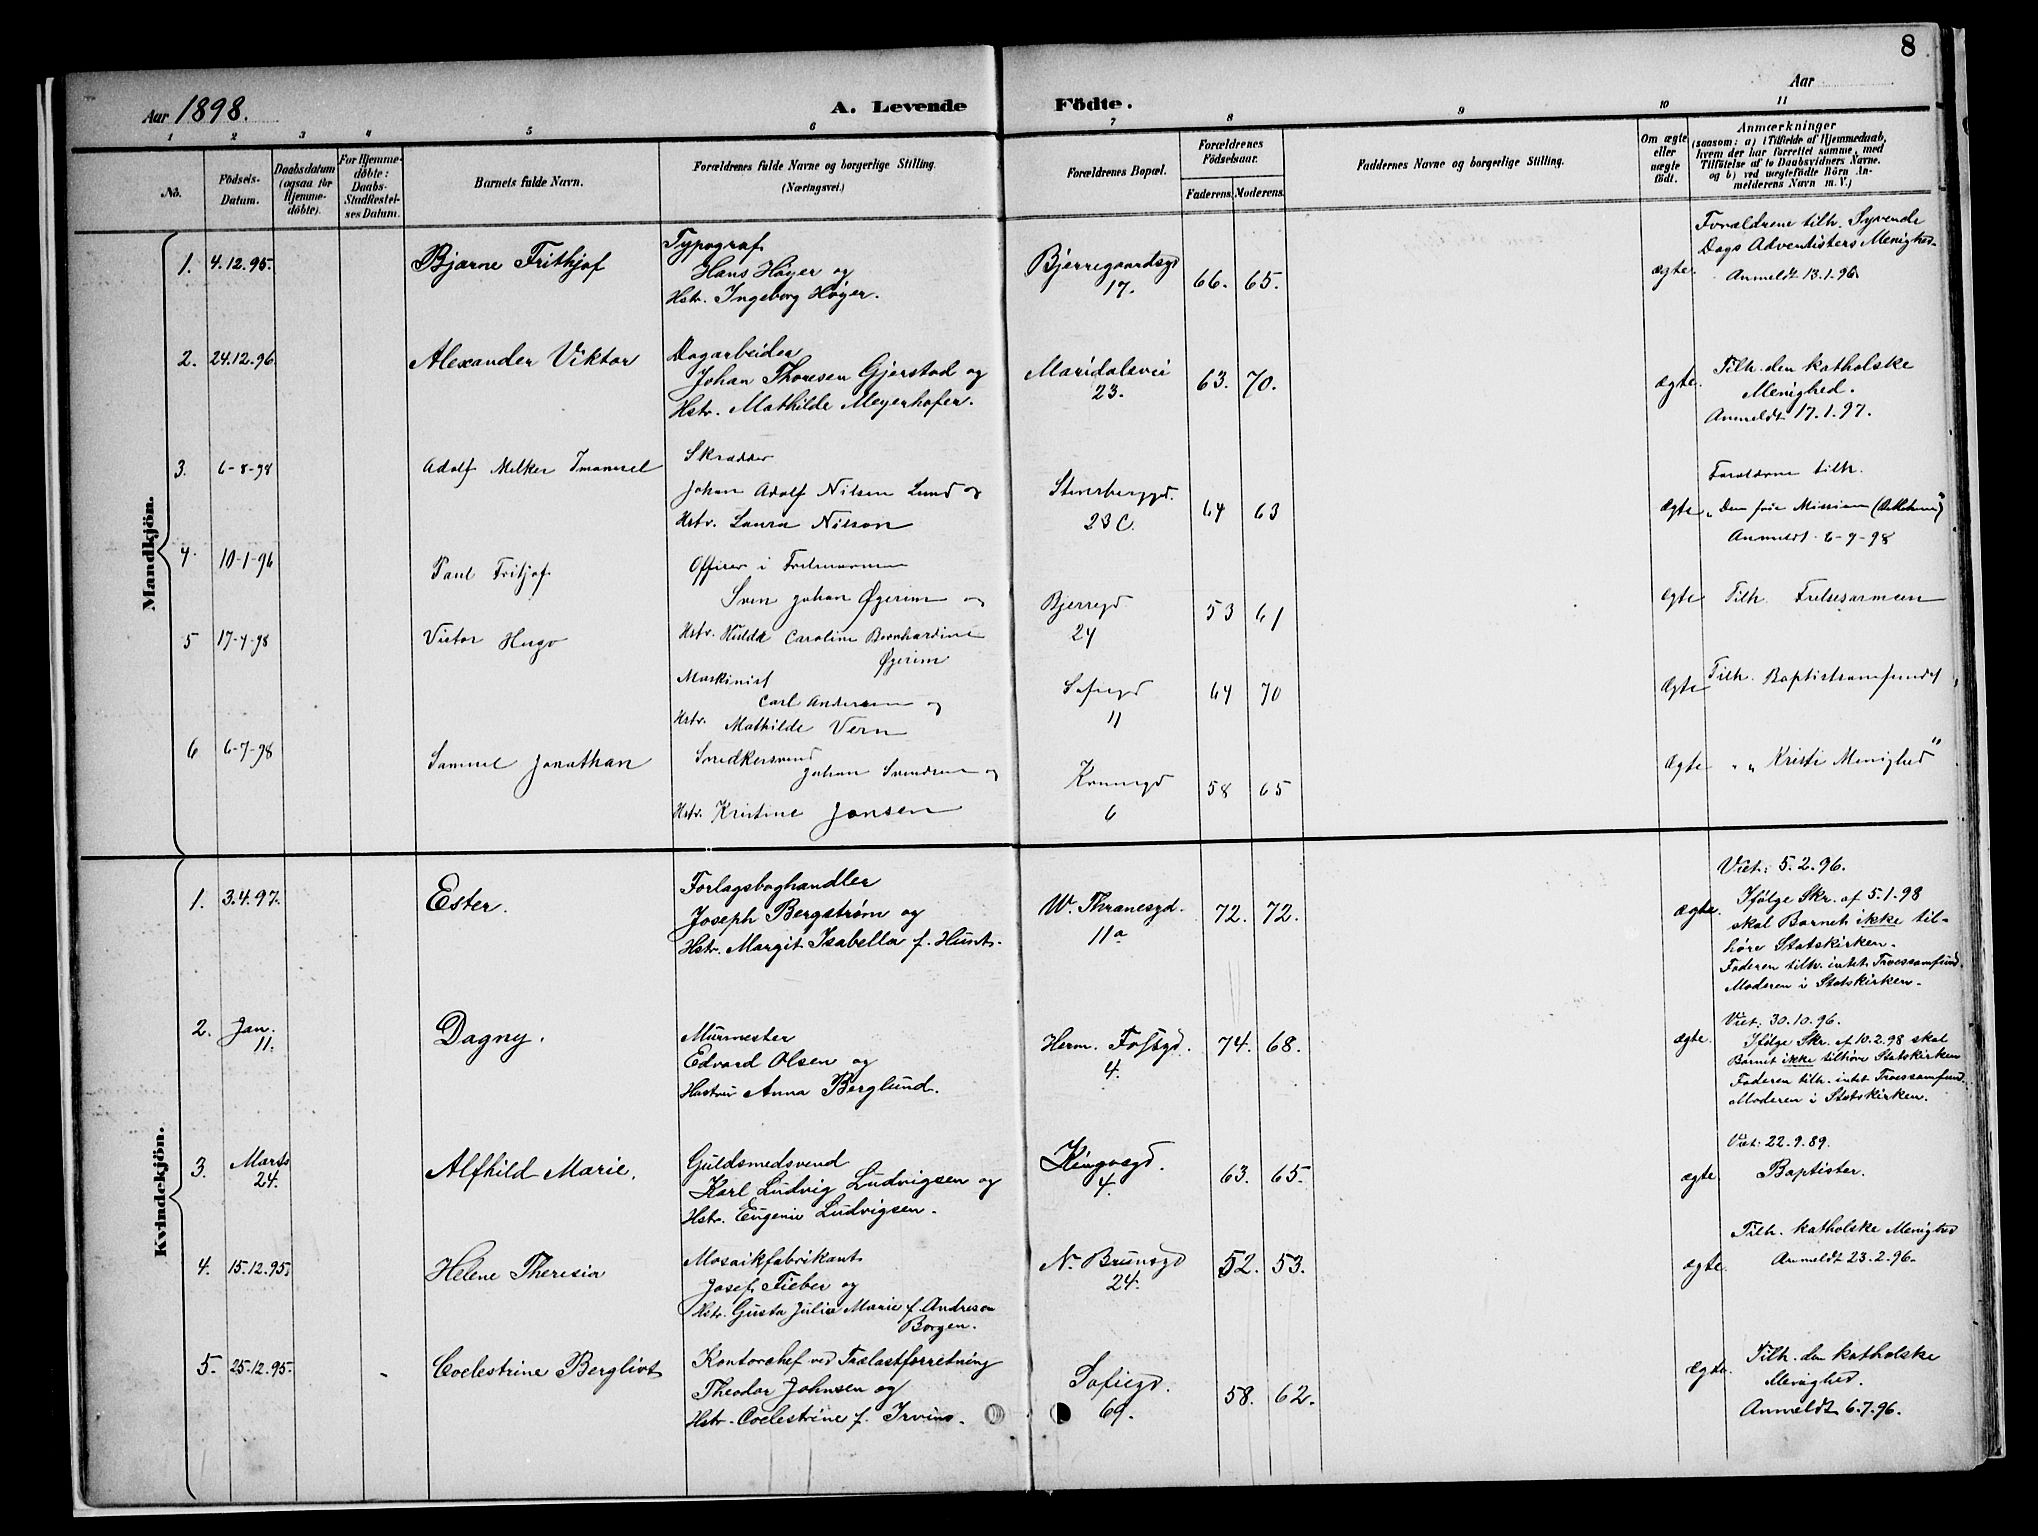 8
Aar 1898.
A. Levende Födte.
Aar
1 2 3 4 5 6 7 8 9 10 11
No.
Födsels-Datum.
Daabsdatum (ogsaa for Hjemmedöbte).
For Hjemmedöbte: Daabs-Stadfæstelses Datum.
Barnets fulde Navn.
Forældrenes fulde Navne og borgerlige Stilling.
(Næringsvei.)
Forældrenes Bopæl.
Forældrenes Födselsaar.
Faderens. Moderens.
Faddernes Navne og borgerlige Stilling.
Om ægte eller uægte födt.
Anmærkninger
(saasom: a) i Tilfælde af Hjemmedaab, hvem der har forrettet samme, med Tilföielse af to Daabsvidners Navne. og b) ved uægtefödte Börn Anmelderens Navn m. V.)
Mandkjön.
1. 4.12.95. Bjarne Frithjof
Typograf
Hans Høyer og
Hstr. Ingeborg Høyer.
Bjerregaardsgd
17.
66. 65.
ægte.
Forældrene tilh. Syvende
Dags Adventisters Menighed.
Anmeldt 13.1.96.
2. 24.12.96 Alexander Viktor
Dagarbeider
Johan Thoresen Gjerstad og
Hstr. Mathilde Meyerhofer.
Maridalsvei
23.
63. 70.
ægte.
Tilh. den katholske
Menighed.
Anmeldt 17.1.97.
3. 6-8-98 Adolf Melker Imanuel
Skrædder
Johan Adolf Nilsen Lund og
Hstr. Laura Nilson
Stensberggd.
23 C.
64 63
Ægte
Forældrene tilh.
„Den frie Mission
Anmeldt 6-9-98
4. 10-1-96 Paul Fritjof
Officer i Frelsearmeen
Sven Johan Øgrim og
Hstr. Hulda Caroline Bernhardine
Øgrim
Bjerregd
24
53 61
Ægte
Tilh. Frelsesarmeen
5 17-4-98 Victor Hugo
Maskinist
Carl Andersen og
Hstr. Mathilde Vern
Sofiegd
11
64 70
Ægte
Tilh. Baptistsamfundet
6 6-7-98 Samuel Jonathan
Snedkersvend
Johan Svendsen og
Hstr. Kristine Jansen
6
58 65
Ægte
„ „Kristi Menighed“
Kvindekjön.
1. 3.4.97. Ester.
Forlagsboghandler
Joseph Bergstrøm og
Hstr. Margit Isabella f. Hunt.
W. Thranesgd.
11a
72. 72.
ægte.
Viet: 5.2.96.
Ifølge Skr. af 5.1.98
skal Barnet ikke til-
høre Statskirken.
Faderen tilh. intet Troessamfund.
Moderen i Statskirken.
2. Jan.
11. Dagny.
Murmester
Edvard Olsen og
Hustru Anna Berglund.
Herm. Fossgd.
4.
74. 68.
ægte.
Viet: 30.10.96.
Ifølge Skr. af 10.2.98 skal
Barnet ikke tilhøre Statskirken
Faderen tilh. intet Troessamfund.
Moderen i Statskirken.
3. Marts
24. Alfhild Marie.
Guldsmedsvend
Karl Ludvig Ludvigsen og
Hstr. Eugenie Ludvigsen.
Kingosgd.
4.
63. 65.
ægte
Viet: 22.9.89.
Baptister.
4. 15.12.95. Helene Theresia
Mosaikfabrikant
Josef Fieber og
Hstr. Gusta Julie Marie f. Andresen
Borgen.
N. Brunsgd
24.
52. 53.
ægte.
Tilh. katholske Menighed
Anmeldt 23.2.96.
5. 25.12.95. Coelestrine Bergliot
Kontorchef ved Trælastforretning
Theodor Johnsen og
Hstr. Coelestrine f. Irvine.
Sofiegd.
69.
58. 62.
ægte.
Tilh. den katholske
Menighed.
Anmeldt 6.7.96.